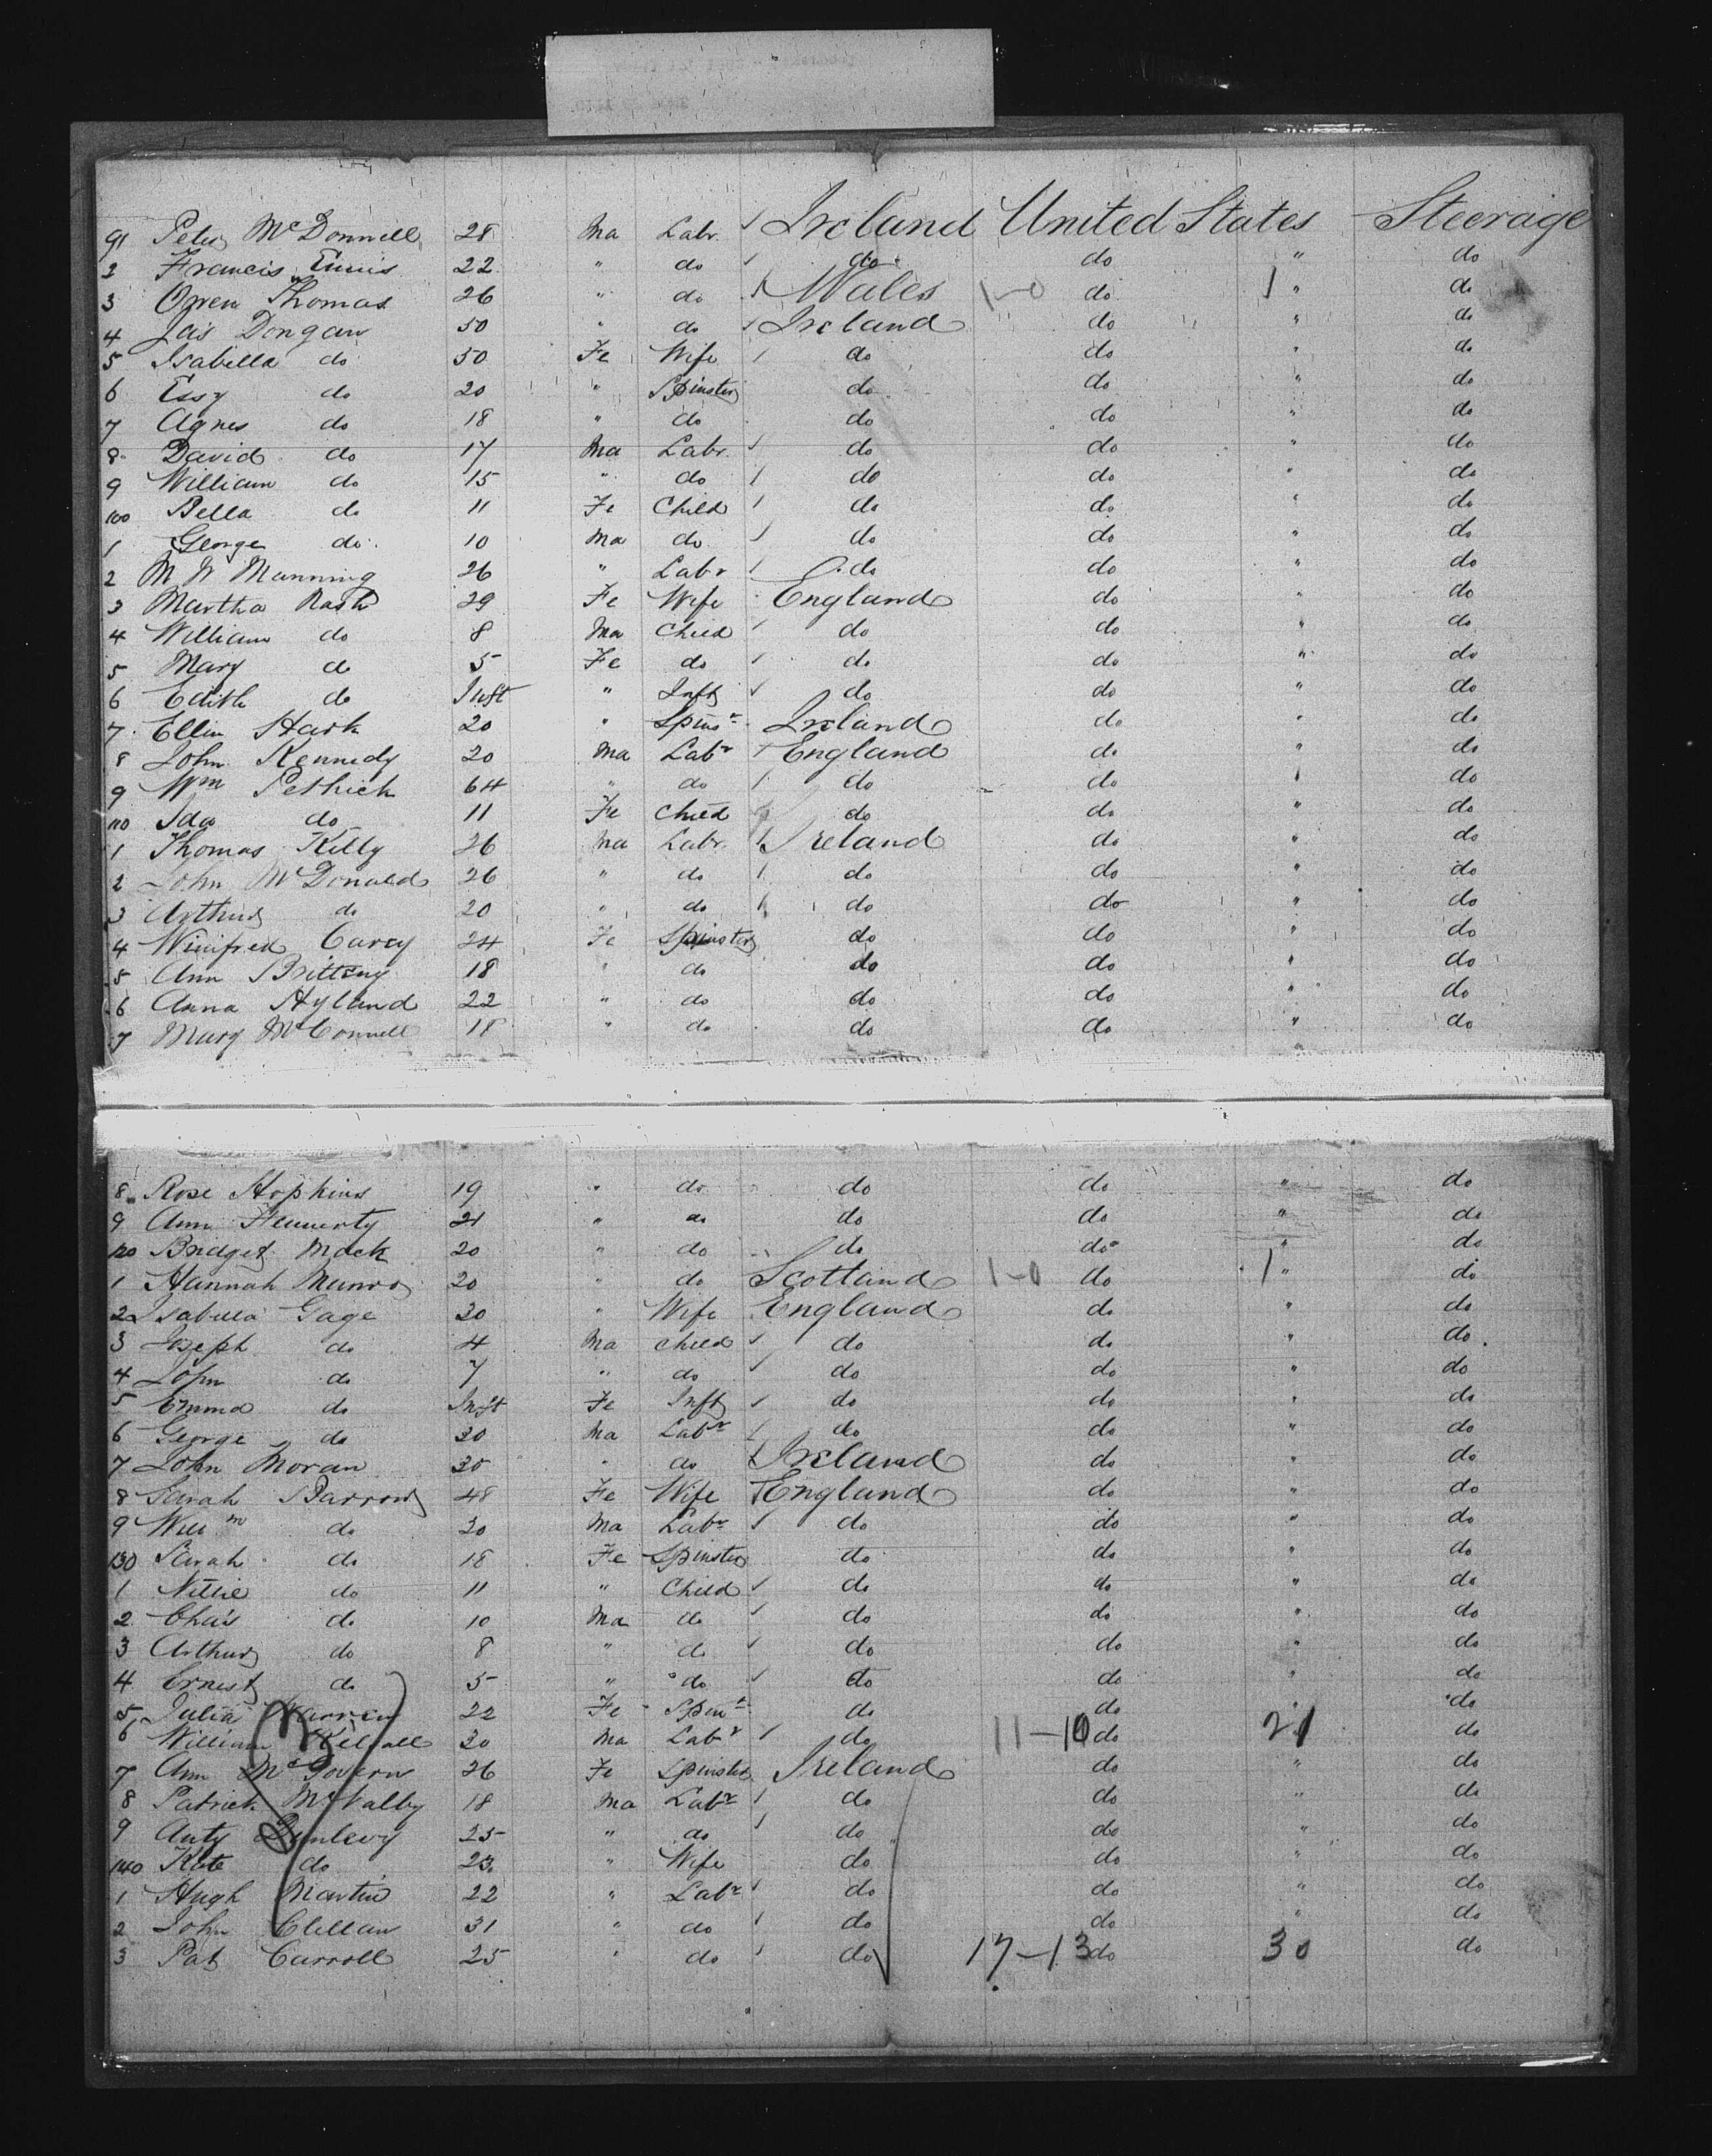 91 Peter McDonnell 28 Ma Labr. Ireland United States Steerage
2 Francis Ennis 22 " do do do " do
3 Owen Thomas 26 " do Wales 1-0 do 1 " do
4 Jas Dongan 50 " do Ireland do " do
5 Isabella do 50 Fe Wife do do " do
6 Essy do 20 " Spinster do do " do
7 Agnes do 18 " do do do " do
8 David do 17 Ma Labr. do do " do
9 William do 15 " do do do " do
100 Bella do 11 Fe Child do do " do
1 George do 10 Ma do do do " do
2 M W Manning 26 " Labr do do " do
3 Martha Nash 29 Fe Wife England do " do
4 William do 8 Ma Child do do " do
5 Mary do 5 Fe do do do " do
6 Edith do Inft " Inft do do " do
7 Ellen Hark 20 " Spinsr Ireland do " do
8 John Kennedy 20 Ma Labr England do " do
9 Wm Pethick 64 " do do do " do
110 Ida do 11 Fe Child do do " do
1 Thomas Kelly 26 Ma Labr. Ireland do " do
2 John McDonald 26 " do do do " do
3 Arthur do 20 " do do do " do
4 Winifred Carey 24 Fe Spinster do do " do
5 Ann Britteny 18 " do do do " do
6 Anna Hyland 22 " do do do " do
7 Mary McConnell 18 " do do do " do
8 Rose Hopkins 19 " do do do " do
9 Ann Fennerty 21 " do do do " do
120 Bridget Mack 20 " do do do " do
1 Hannah Munro 20 " do Scotland 1-0 do 1 " do
2 Isabella Gage 30 " Wife England do " do
3 Joseph do 4 Ma Child do do " do
4 John do 7 " do do do " do
5 Emma do Inft Fe Inft do do " do
6 George do 30 Ma Labr do do " do
7 John Moran 30 " do Ireland do " do
8 Sarah Barrow 48 Fe Wife England do " do
9 Willm do 20 Ma Labr do do " do
130 Sarah do 18 Fe Spinster do do " do
1 Nellie do 11 " Child do do " do
2 Chas do 10 Ma do do do " do
3 Arthur do 8 " do do do " do
4 Ernest do 5 " do do do " do
5 Julia Warren 22 Fe Spinr do do " do
6 William 30 Ma Labr do 11-10 do 21 do
7 Ann McGovern 26 Fe Spinster Ireland do " do
8 Patrick McNally 18 Ma Labr do do " do
9 Anty Dunlevy 25 " do do do " do
140 Kate do 23 " Wife do do " do
1 Hugh Martin 22 " Labr do do " do
2 John Clellan 31 " do do do " do
3 Pat Carroll 25 " do do 17-13 do 30 do